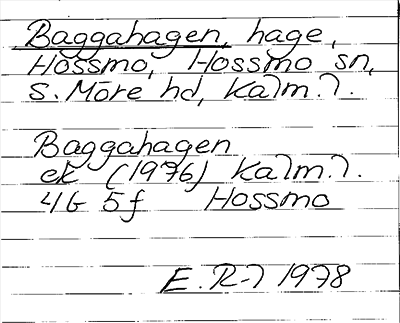 Baggahagen, hage,
Hossmo, Hossmo sn,
S. Möre hd, Kalm. l.
Baggahagen
ek (1976) Kalm. l.
4G 5f Hossmo
E. R-l 1978